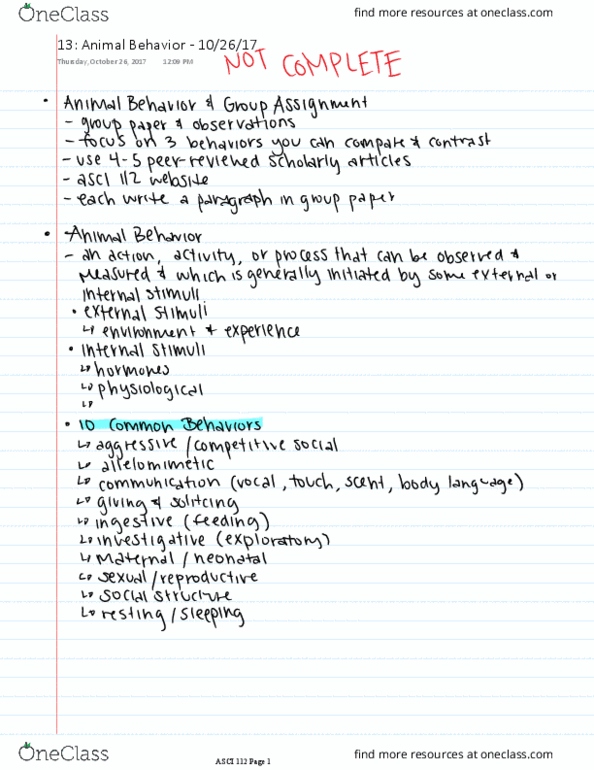 OneClass
find more resources at oneclass.com
13: Animal Behavior - 10/26/17
Thursday, October 26, 2017 12:09 PM
NOT COMPLETE
• Animal Behavior & Group Assignment
- group paper & observations
- focus on 3 behaviors you can compare & contrast
- use 4-5 peer-reviewed scholarly articles
- asci 112 website
- each write a paragraph in group paper
• Animal Behavior
- an action, activity, or process that can be observed &
measured & which is generally initiated by some external or
internal stimuli
• external stimuli
↳ environment & experience
• internal stimuli
↳ hormones
↳ physiological
↳
• 10 Common Behaviors
↳ aggressive/competitive social
↳ allelomimetic
↳ communication (vocal, touch, scent, body language)
↳ giving & solitcing
↳ ingestive (feeding)
↳ investigative (exploratory)
↳ maternal / neonatal
↳ sexual/reproductive
↳ social structure
↳ resting / sleeping
OneClass
ASCI 112 Page 1
find more resources at oneclass.com